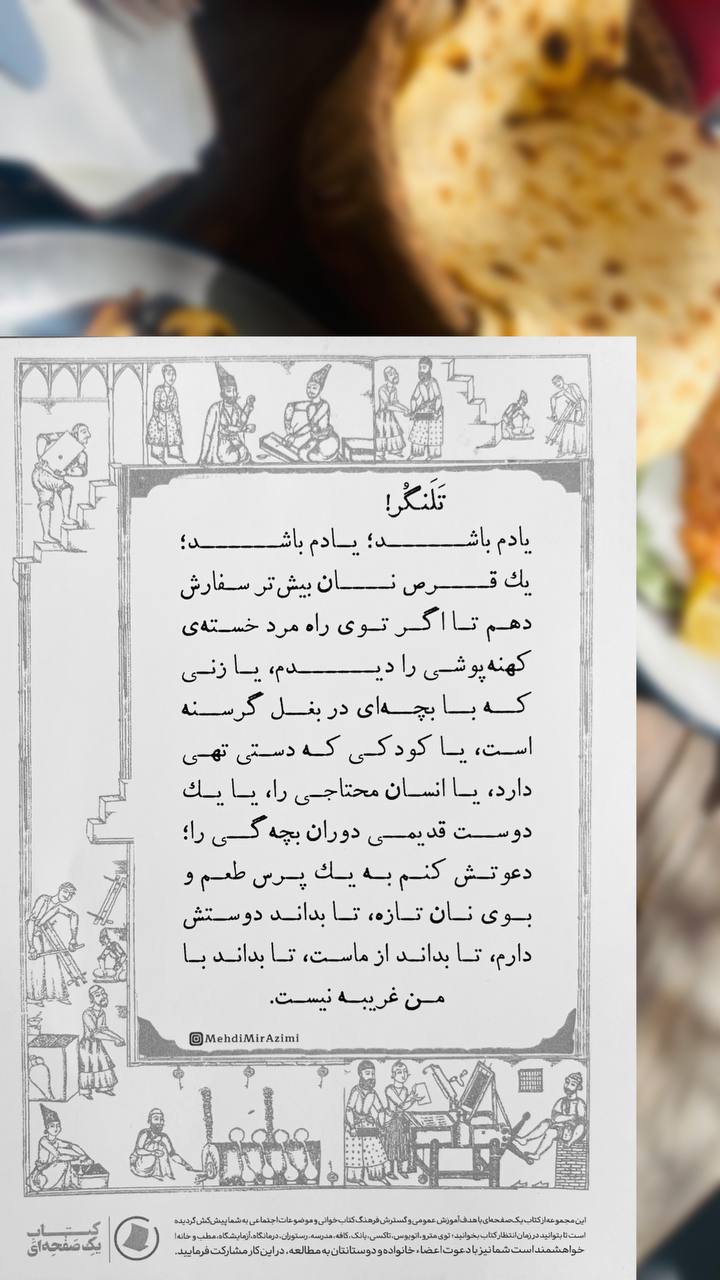 تَلَنگُر!
یادم باشد؛ یادم باشد؛
یك قرص نان بیش‌تر سفارش
دهم تا اگر توی راه مرد خسته‌ی
کهنه‌پوشی را دیدم، یا زنی
که با بچه‌ای در بغل گرسنه
است، یا کودکی که دستی تهی
دارد، یا انسان محتاجی را، یا یك
دوست قدیمی دوران بچه‌گی را؛
دعوتش کنم به یك پرس طعم و
بوی نان تازه، تا بداند دوستش
دارم، تا بداند از ماست، تا بداند با
من غریبه نیست.
MehdiMirAzimi
این مجموعه از کتاب یک صفحه‌ای با هدف آموزش عمومی و گسترش فرهنگ کتاب‌خوانی و موضوعات اجتماعی به شما پیش‌کش گردیده
است تا بتوانید در زمان انتظار کتاب بخوانید؛ توی مترو، اتوبوس، تاکسی، بانک، کافه، مدرسه، رستوران، درمانگاه، آزمایشگاه، مطب و خانه!
خواهشمند است شما نیز با دعوت اعضاء خانواده و دوستانتان به مطالعه، در این کار مشارکت فرمایید.
کتاب
یک صفحه‌ای